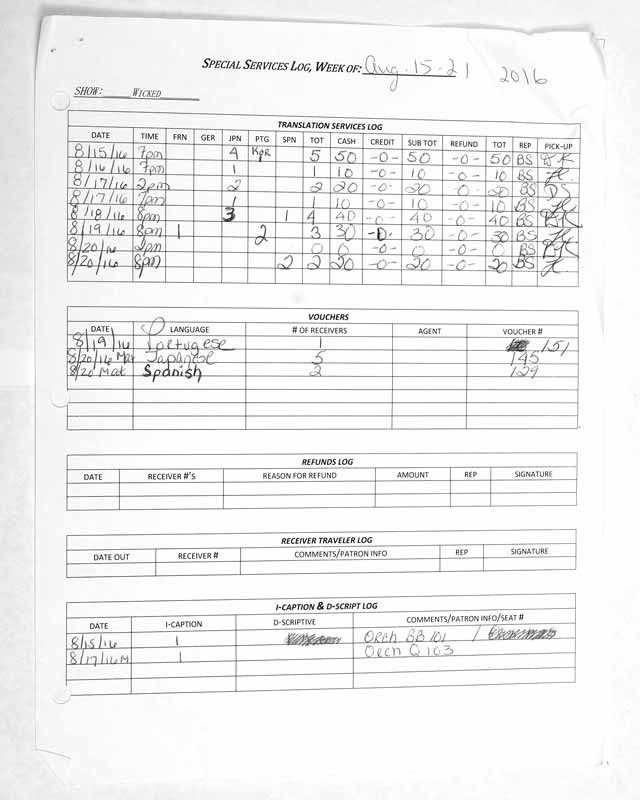 SPECIAL SERVICES LOG, WEEK OF: Aug. 15-21 2016
SHOW: WICKED
TRANSLATION SERVICES LOG
DATE TIME FRN GER JPN PTG SPN TOT CASH CREDIT SUB TOT REFUND TOT REP PICK-UP
8/15/16 7pm 4 KOR 5 50 -0- 50 -0- 50 BS
8/16/16 7pm 1 1 10 -0- 10 -0- 10 BS
8/17/16 2pm 2 2 20 -0- 20 -0- 20 BS DS
8/17/16 7pm 1 1 10 -0- 10 -0- 10 BS
8/18/16 8pm 3 1 4 40 -0- 40 -0- 40 BS
8/19/16 8pm 1 2 3 30 -0- 30 -0- 30 BS
8/20/16 2pm 0 0 -0- 0 -0- 0 BS
8/20/16 8pm 2 2 20 -0- 20 -0- 20 BS
VOUCHERS
DATE LANGUAGE # OF RECEIVERS AGENT VOUCHER #
8/19/16 Portugese 1 151
8/20/16 Mat Japanese 5 145
8/20 Mat Spanish 2 129
REFUNDS LOG
DATE RECEIVER #'S REASON FOR REFUND AMOUNT REP SIGNATURE
RECEIVER TRAVELER LOG
DATE OUT RECEIVER # COMMENTS/PATRON INFO REP SIGNATURE
I-CAPTION & D-SCRIPT LOG
DATE I-CAPTION D-SCRIPTIVE COMMENTS/PATRON INFO/SEAT #
8/15/16 1 Orch BB 101 /
8/17/16 M 1 Orch Q 103